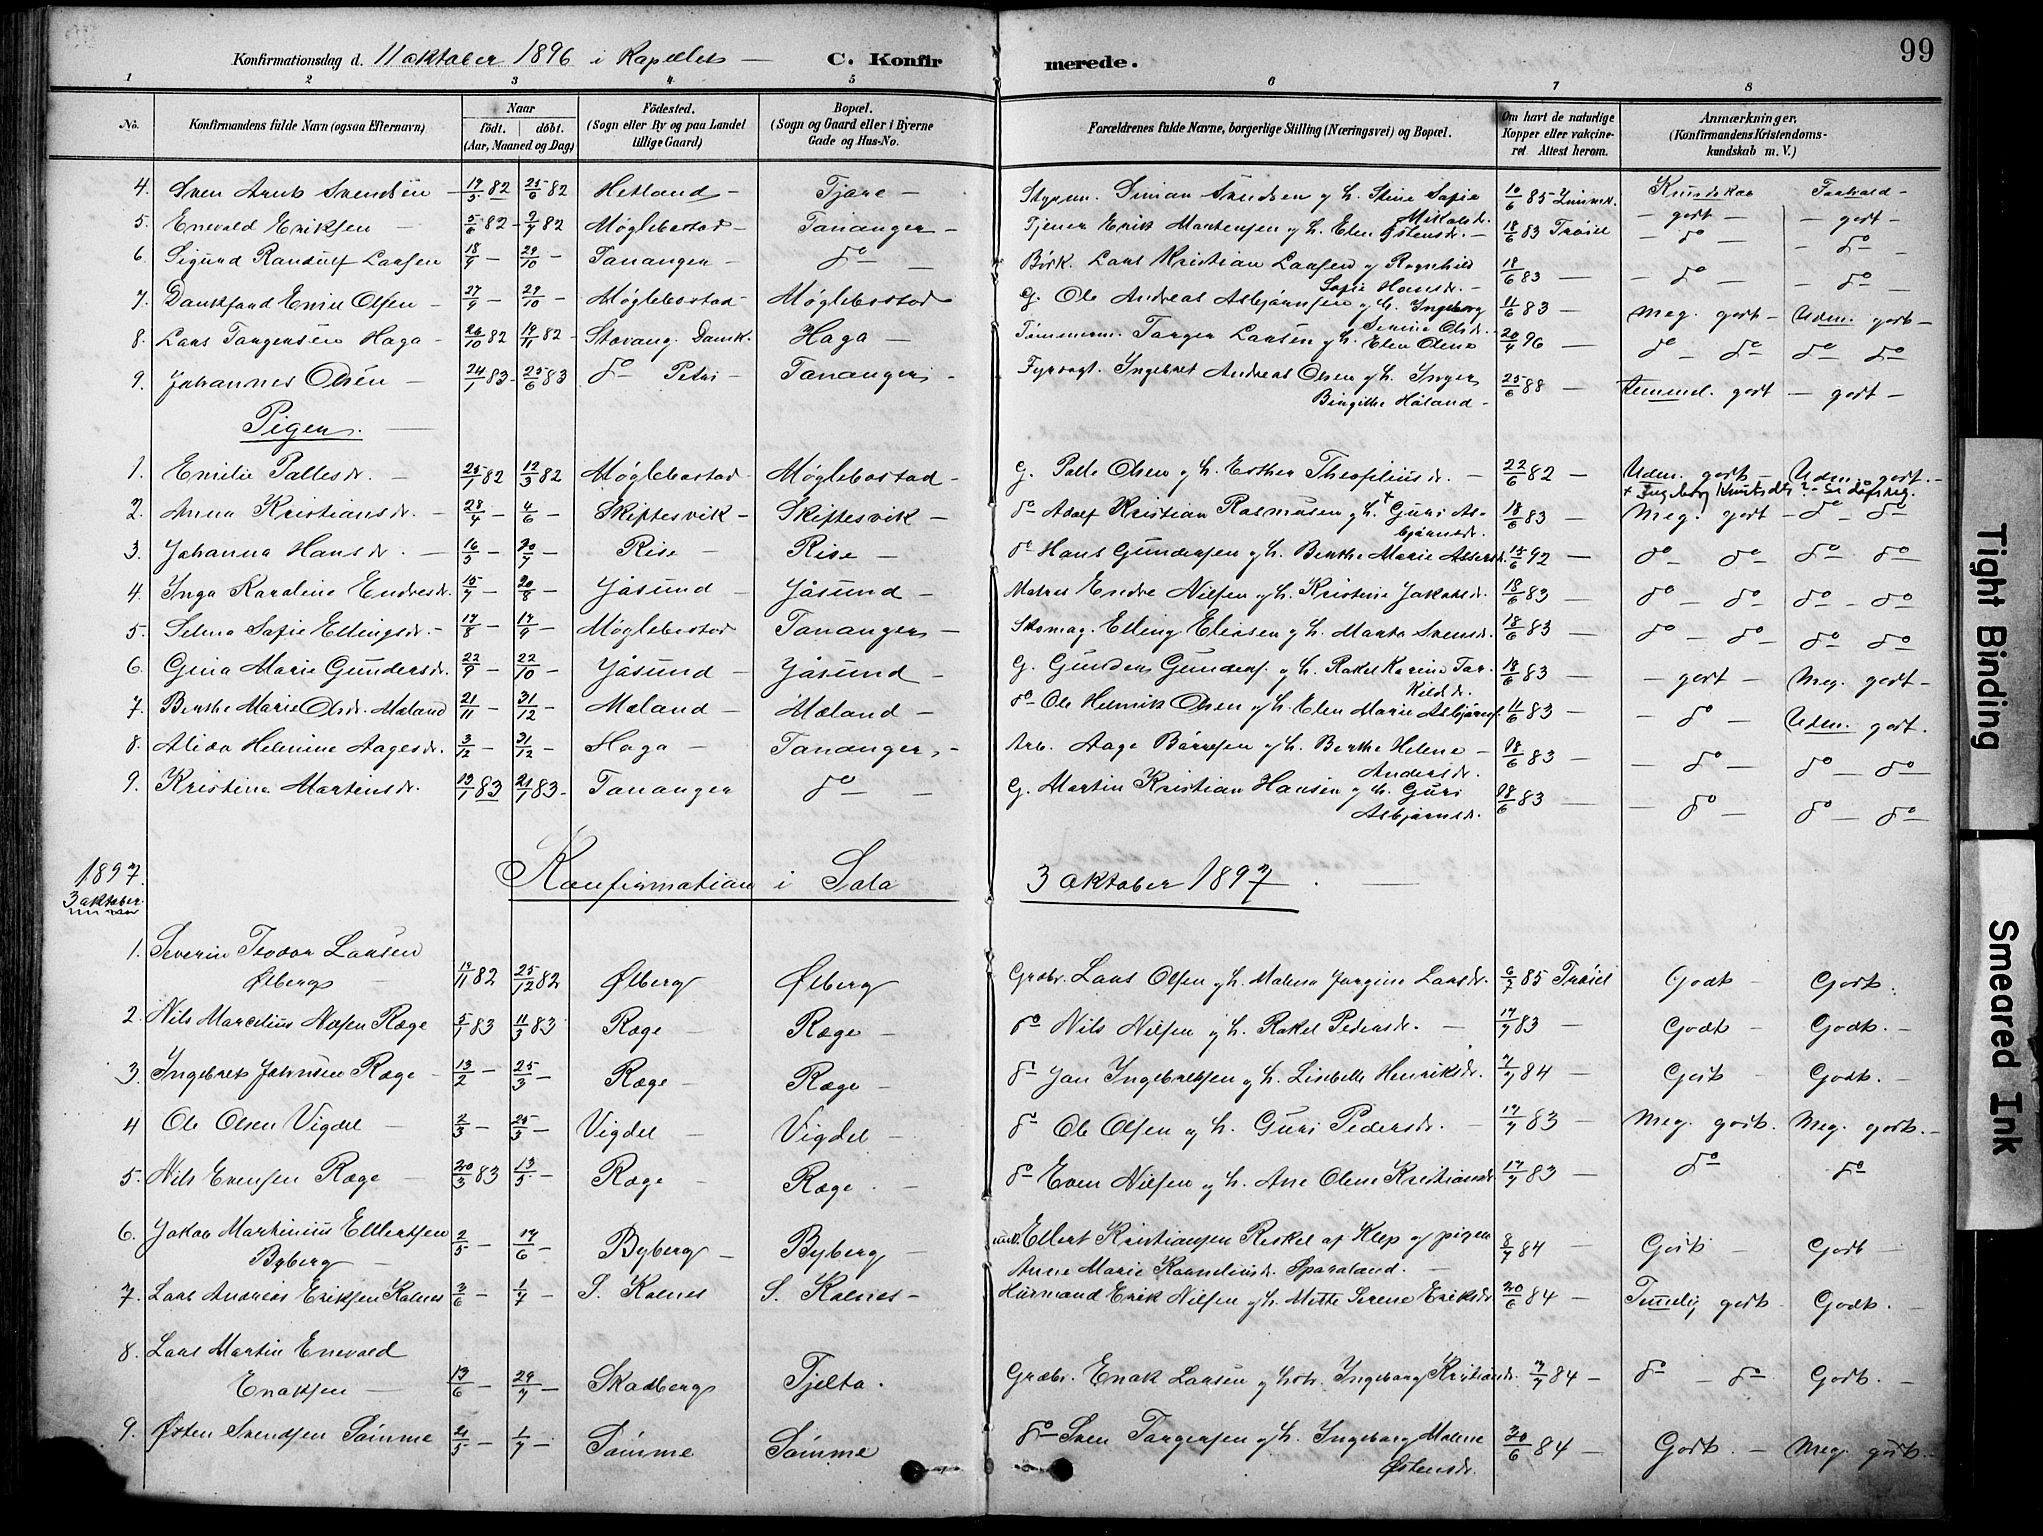 Konfirmationsdag d. 11 oktober 1896 i Kapellet — C. Konfirmerede. 99
1 2 3 4 5 6 7 8
No. Konfirmandens fulde Navn (ogsaa Efternavn) Naar født. døbt. (Aar, Maaned og Dag) Fødested. (Sogn eller By og paa Landet tillige Gaard) Bopæl. (Sogn og Gaard eller i Byerne Gade og Hus-No. Forældrenes fulde Navne, borgerlige Stilling (Næringsvei) og Bopæl. Om havt de naturlige Kopper eller vakcineret. Attest herom. Anmærkninger. (Konfirmandens Kristendomskundskab m. V.)
4. Sven Svendsen 19/5 82 25/6 82 Hetland - Tjøre - Simon Svendsen g. h. Stine Sofie 10/6 85 Kundskab Forhold -
5. Enevald Eriksen - 5/6 82 - 2/7 82 Møglebostad - Tananger - Tjener Erik Mortensen g. h. Elen Østensdr. - 18/6 83 Trøsil - godt - - godt -
6. Sigurd Randulf Larsen 18/9 - 29/10 - Tananger - do - Lars Kristian Larsen g. Ragnhild Sofie Hansdr. - 18/6 83 - do - - do -
7. Dankfard Emil Olsen - 27/9 - 29/10 - Møglebostad - Møglebostad G. Ole Andreas Asbjørnsen g. h. Ingeborg Serine Olsdr. 11/6 83 - do - - do -
8. Lars Torgersen Haga - 26/10 82 19/11 82 - Stavang. Domk. Haga - Tømmerm. Torger Larsen g. h. Elen Olene 20/4 96 - Meg. godt - Udm. godt -
9. Johannes Olsen - 24/1 83 - 25/6 83 do Petri - Tananger - Fyrvogt. Ingebret Andreas Olsen g. h. Inger Birgithe Høland - 25/6 88 - do - do do do
Temmel. godt - godt -
Piger. -
1. Emilie Pallesdr. - 25/1 82 12/3 82 Møglebostad - Møglebostad - G. Palle Olsen g. h. Esther Theofiliusdr. - 22/6 82 - Udm. godt - Udm. godt. -
2. Anna Kristiansdr. - 28/4 - 4/6 - Skiftesvik - Skiftesvik - do Adolf Kristian Rasmusen g. h. + Guri Asbjørnsdr. 18/6 83 - Meg. godt - do - do
+ Ingeborg Knutsdtr ? - se dåpsreg.
3. Johanna Hansdr. - 16/5 - 20/7 - Risa - Risa - do Hans Gundersen g. h. Berthe Marie Assersdr. 15/6 92 - do do do do
4. Inga Karoline Endresdr. 15/7 - 20/8 - Jåsund - Jåsund - Matros Endre Nilsen g. h. Kristine Jakobsdr. 18/6 83 - do - do do - do
5. Selma Sofie Ellingsdr. - 19/8 - 17/9 - Møglebostad Tananger - Skomag. Elling Eliasen g. h. Marta Svensdr. 18/6 83 - do - do do do
6. Gina Marie Gundersdr. 22/9 - 22/10 - Jåsund - Jåsund - G. Gunder Gunders. g. h. Rakel Karine Torkildsdr. 18/6 83 - - godt - Meg. godt -
7. Berthe Marie Olsdr. Mæland 21/11 - 31/12 - Mæland - Mæland - do Ole Helmik Olsen g. h. Elen Marie Asbjørns. 11/6 83 - - do - Udm. godt.
8. Alida Helmine Aagesdr. 3/12 - 31/12 - Haga - Tananger - Arb. Aage Børresen g. h. Berthe Helene Andersdr. 18/6 83 - - do - do - do
9. Kristine Martinsdr. 13/1 83 21/1 83 - Tananger do - G. Martin Kristian Hansen g. h. Guri Asbjørnsdr. 18/6 83 - - do do - do
1897.
3 oktober
Konfirmation i Sola 3 oktober 1897. -
1. Severin Teodor Larsen
Ølberg - 19/11 82 25/12 82 Ølberg Ølberg Grdbr. Lars Olsen g. h. Malena Jorgine Larsdr. 6/7 85 Trøsil Godt - Godt.
2. Nils Marcelius Nilsen Ræge 5/1 83 11/3 83 Ræge - Ræge - do Nils Nilsen g. h. Rakel Pedersdr. - 17/7 83 - Godt - Godt. -
3. Ingebret Johnsen Ræge - 13/2 - 25/3 - Ræge - Ræge - do Jon Ingebretsen g. h. Lisebelle Henriksdr. 7/7 84 - Godt - Godt. -
4 Ole Olsen Vigdel - 2/3 - 25/5 - Vigdel - Vigdel - do Ole Olsen g. h. Guri Pedersdr. - 17/7 83 - Meg. godt. Meg. godt. -
5. Nils Evensen Ræge - 20/3 83 13/5 - Ræge - Ræge. - do Even Nilsen g. h. Ane Olene Kristiansdr. 17/7 83 - do do
6. Jakob Martinius Ellertsen
Byberg - 2/5 - 17/6 - Byberg - Byberg - Ellert Kristiansen Reskel af Klep og pigen
Anne Marie Kornelius­dr. Sparaland. - 8/7 84 - Godt - Godt -
7. Lars Andreas Eriksen Kolnes 3/6 - 1/7 - S. Kolnes S. Kolnes - Husmand Erik Nilsen g. h. Mette Serene Eriksdr. 20/6 84 - Temelig godt - Godt. -
8. Lars Martin Enevald
Enoksen - 13/6 - 29/7 - Skadberg Tjelta. Grdbr. Enok Larsen g. h. Ingeborg Kristiansdr. 7/7 84 - do - do Godt. -
9. Østen Svendsen Sømme 21/5 - 1/7 - Sømme Sømme do Sven Torgersen g. h. Ingeborg Malene Østensdr. 20/6 84 - Godt. - Meg. godt. -
Tight Binding
Smeared Ink